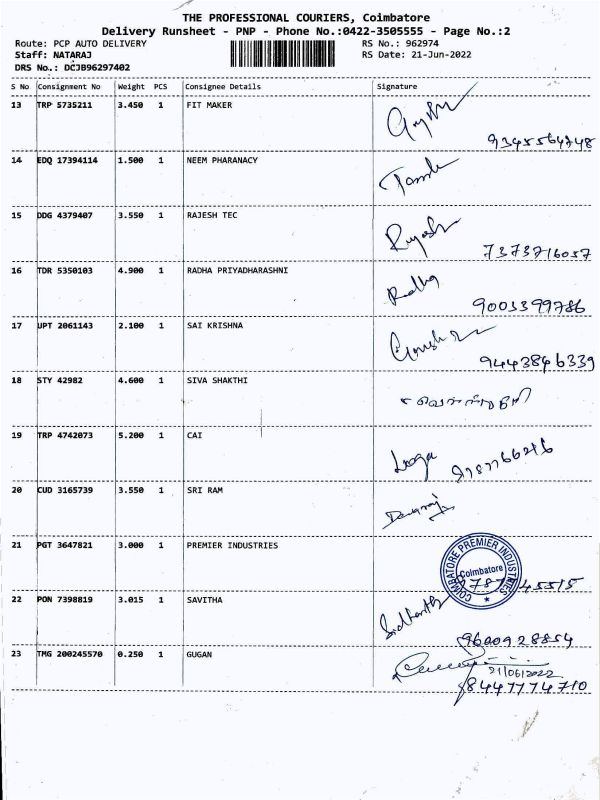 THE PROFESSIONAL COURIERS, Coimbatore
Delivery Runsheet - PNP - Phone No.:0422-3505555 - Page No.:2
Route: PCP AUTO DELIVERY RS No.: 962974
Staff: NATARAJ RS Date: 21-Jun-2022
DRS No.: DCJB96297402
S No Consignment No Weight PCS Consignee Details Signature
13 TRP 5735211 3.450 1 FIT MAKER
9345564748
14 EDQ 17394114 1.500 1 NEEM PHARANACY
15 DDG 4379407 3.550 1 RAJESH TEC
7373716057
16 TDR 5350103 4.900 1 RADHA PRIYADHARASHNI Radha
9003399786
17 UPT 2061143 2.100 1 SAI KRISHNA
9443846339
18 STY 42982 4.600 1 SIVA SHAKTHI
19 TRP 4742073 5.200 1 CAI
20 CUD 3165739 3.550 1 SRI RAM
21 PGT 3647821 3.000 1 PREMIER INDUSTRIES
COIMBATORE PREMIER INDUSTRIES
Coimbatore
22 PON 7398819 3.015 1 SAVITHA Sidharth
9600928854
23 TMG 200245570 0.250 1 GUGAN
21/06/2022
8447774710